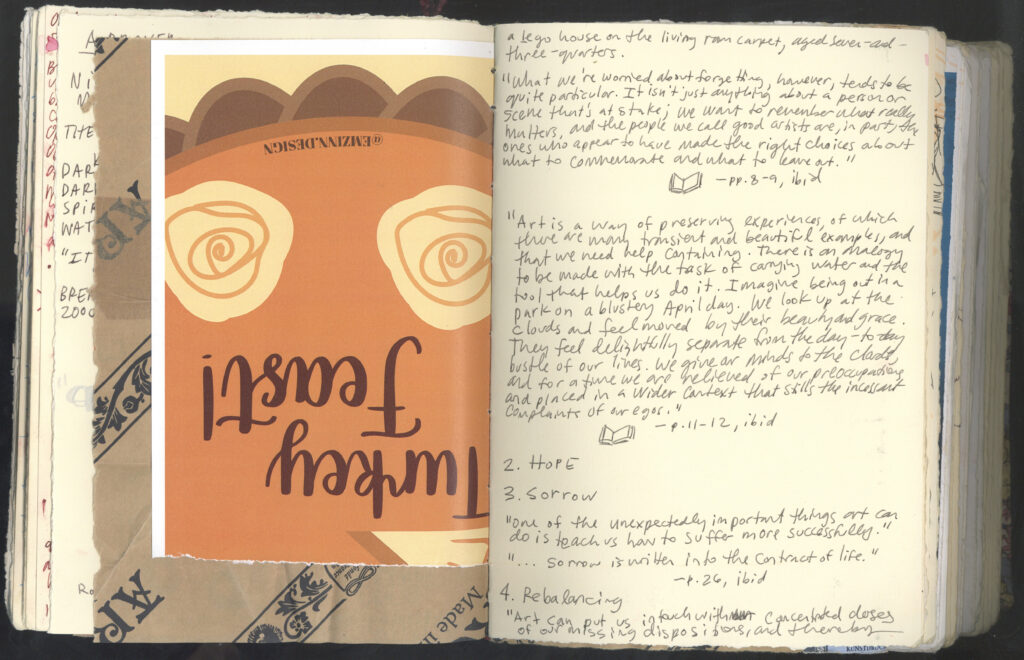 THE
DARK
DAR
SPIR
WAT
"IT
2000
@EMZINN.DESIGN
Turkey
Feast!
Made in
a lego house on the living room carpet, aged seven-and-
three-quarters.
"What we're worried about forgetting, however, tends to be
quite particular. It isn't just anything about a person or
scene that's at stake; we want to remember what really
matters, and the people we call good artists are, in part, the
ones who appear to have made the right choices about
what to commemorate and what to leave out."
—pp. 8-9, ibid
"Art is a way of preserving experiences, of which
there are many transient and beautiful examples, and
that we need help containing. There is an analogy
to be made with the task of carrying water and the
tool that helps us do it. Imagine being out in a
park on a blustery April day. We look up at the
clouds and feel moved by their beauty and grace.
They feel delightfully separate from the day-to-day
bustle of our lives. We give our minds to the clouds,
and for a time we are relieved of our preoccupations
and placed in a wider context that stills the incessant
complaints of our egos."
—p. 11-12, ibid
2. HOPE
3. Sorrow
"One of the unexpectedly important things art can
do is teach us how to suffer more successfully."
"... Sorrow is written into the contract of life."
—p. 26, ibid
4. Rebalancing
"Art can put us in touch with concentrated doses
of our missing dispositions, and thereby